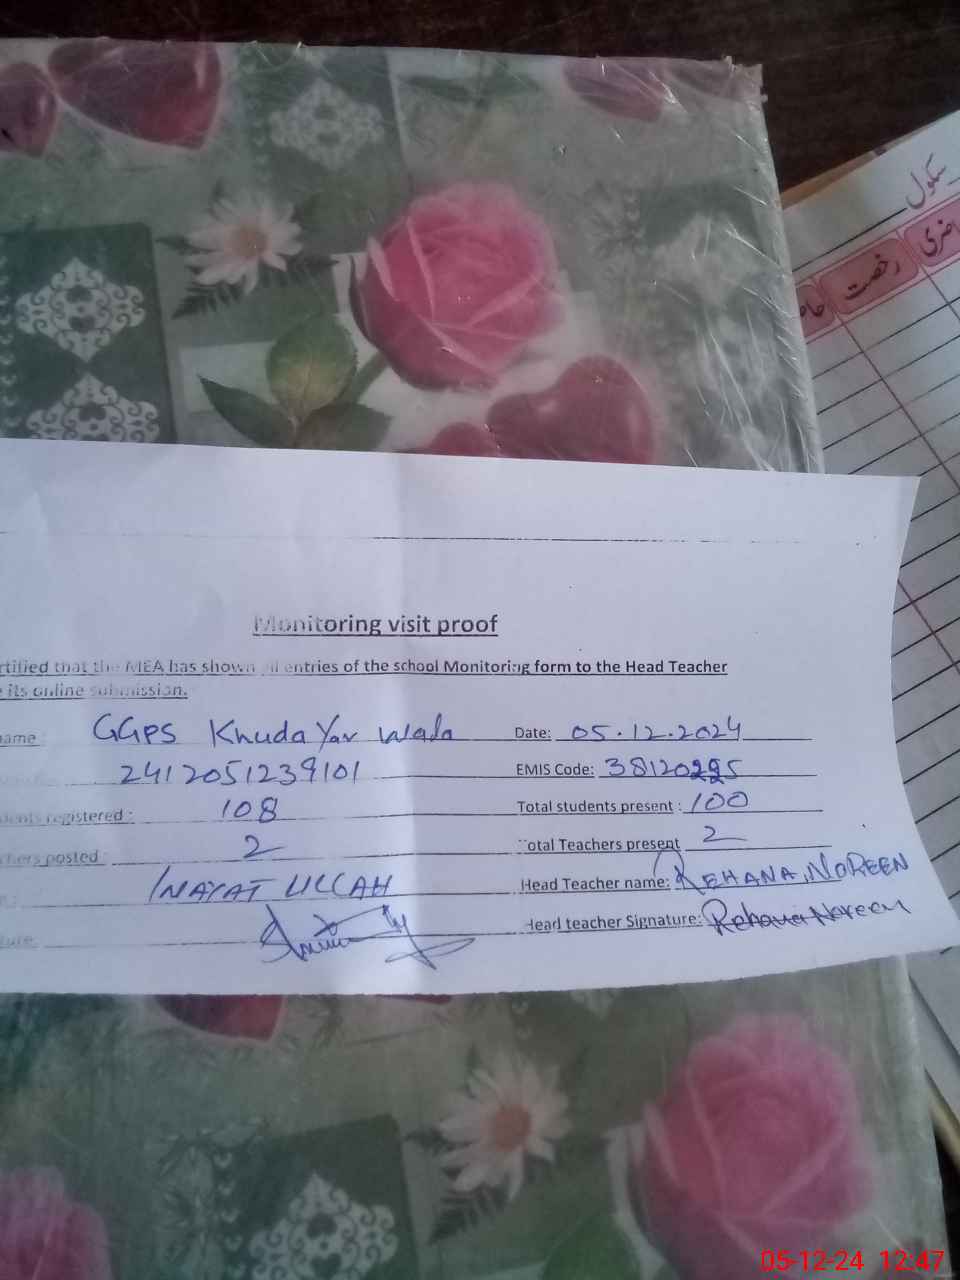 سکول
حاضری
رخصت
Monitoring visit proof
rtified that the MEA has shown all entries of the school Monitoring form to the Head Teacher
e its online submission.
ame : GGPS Khuda Yar Wala Date: 05.12.2024
2412051239101 EMIS Code: 38120295
dents registered : 108 Total students present : 100
chers posted : 2 Total Teachers present 2
INAYAT ULLAH Head Teacher name: REHANA, NOREEN
ture: Head teacher Signature: Rehana Noreen
05-12-24 12:47